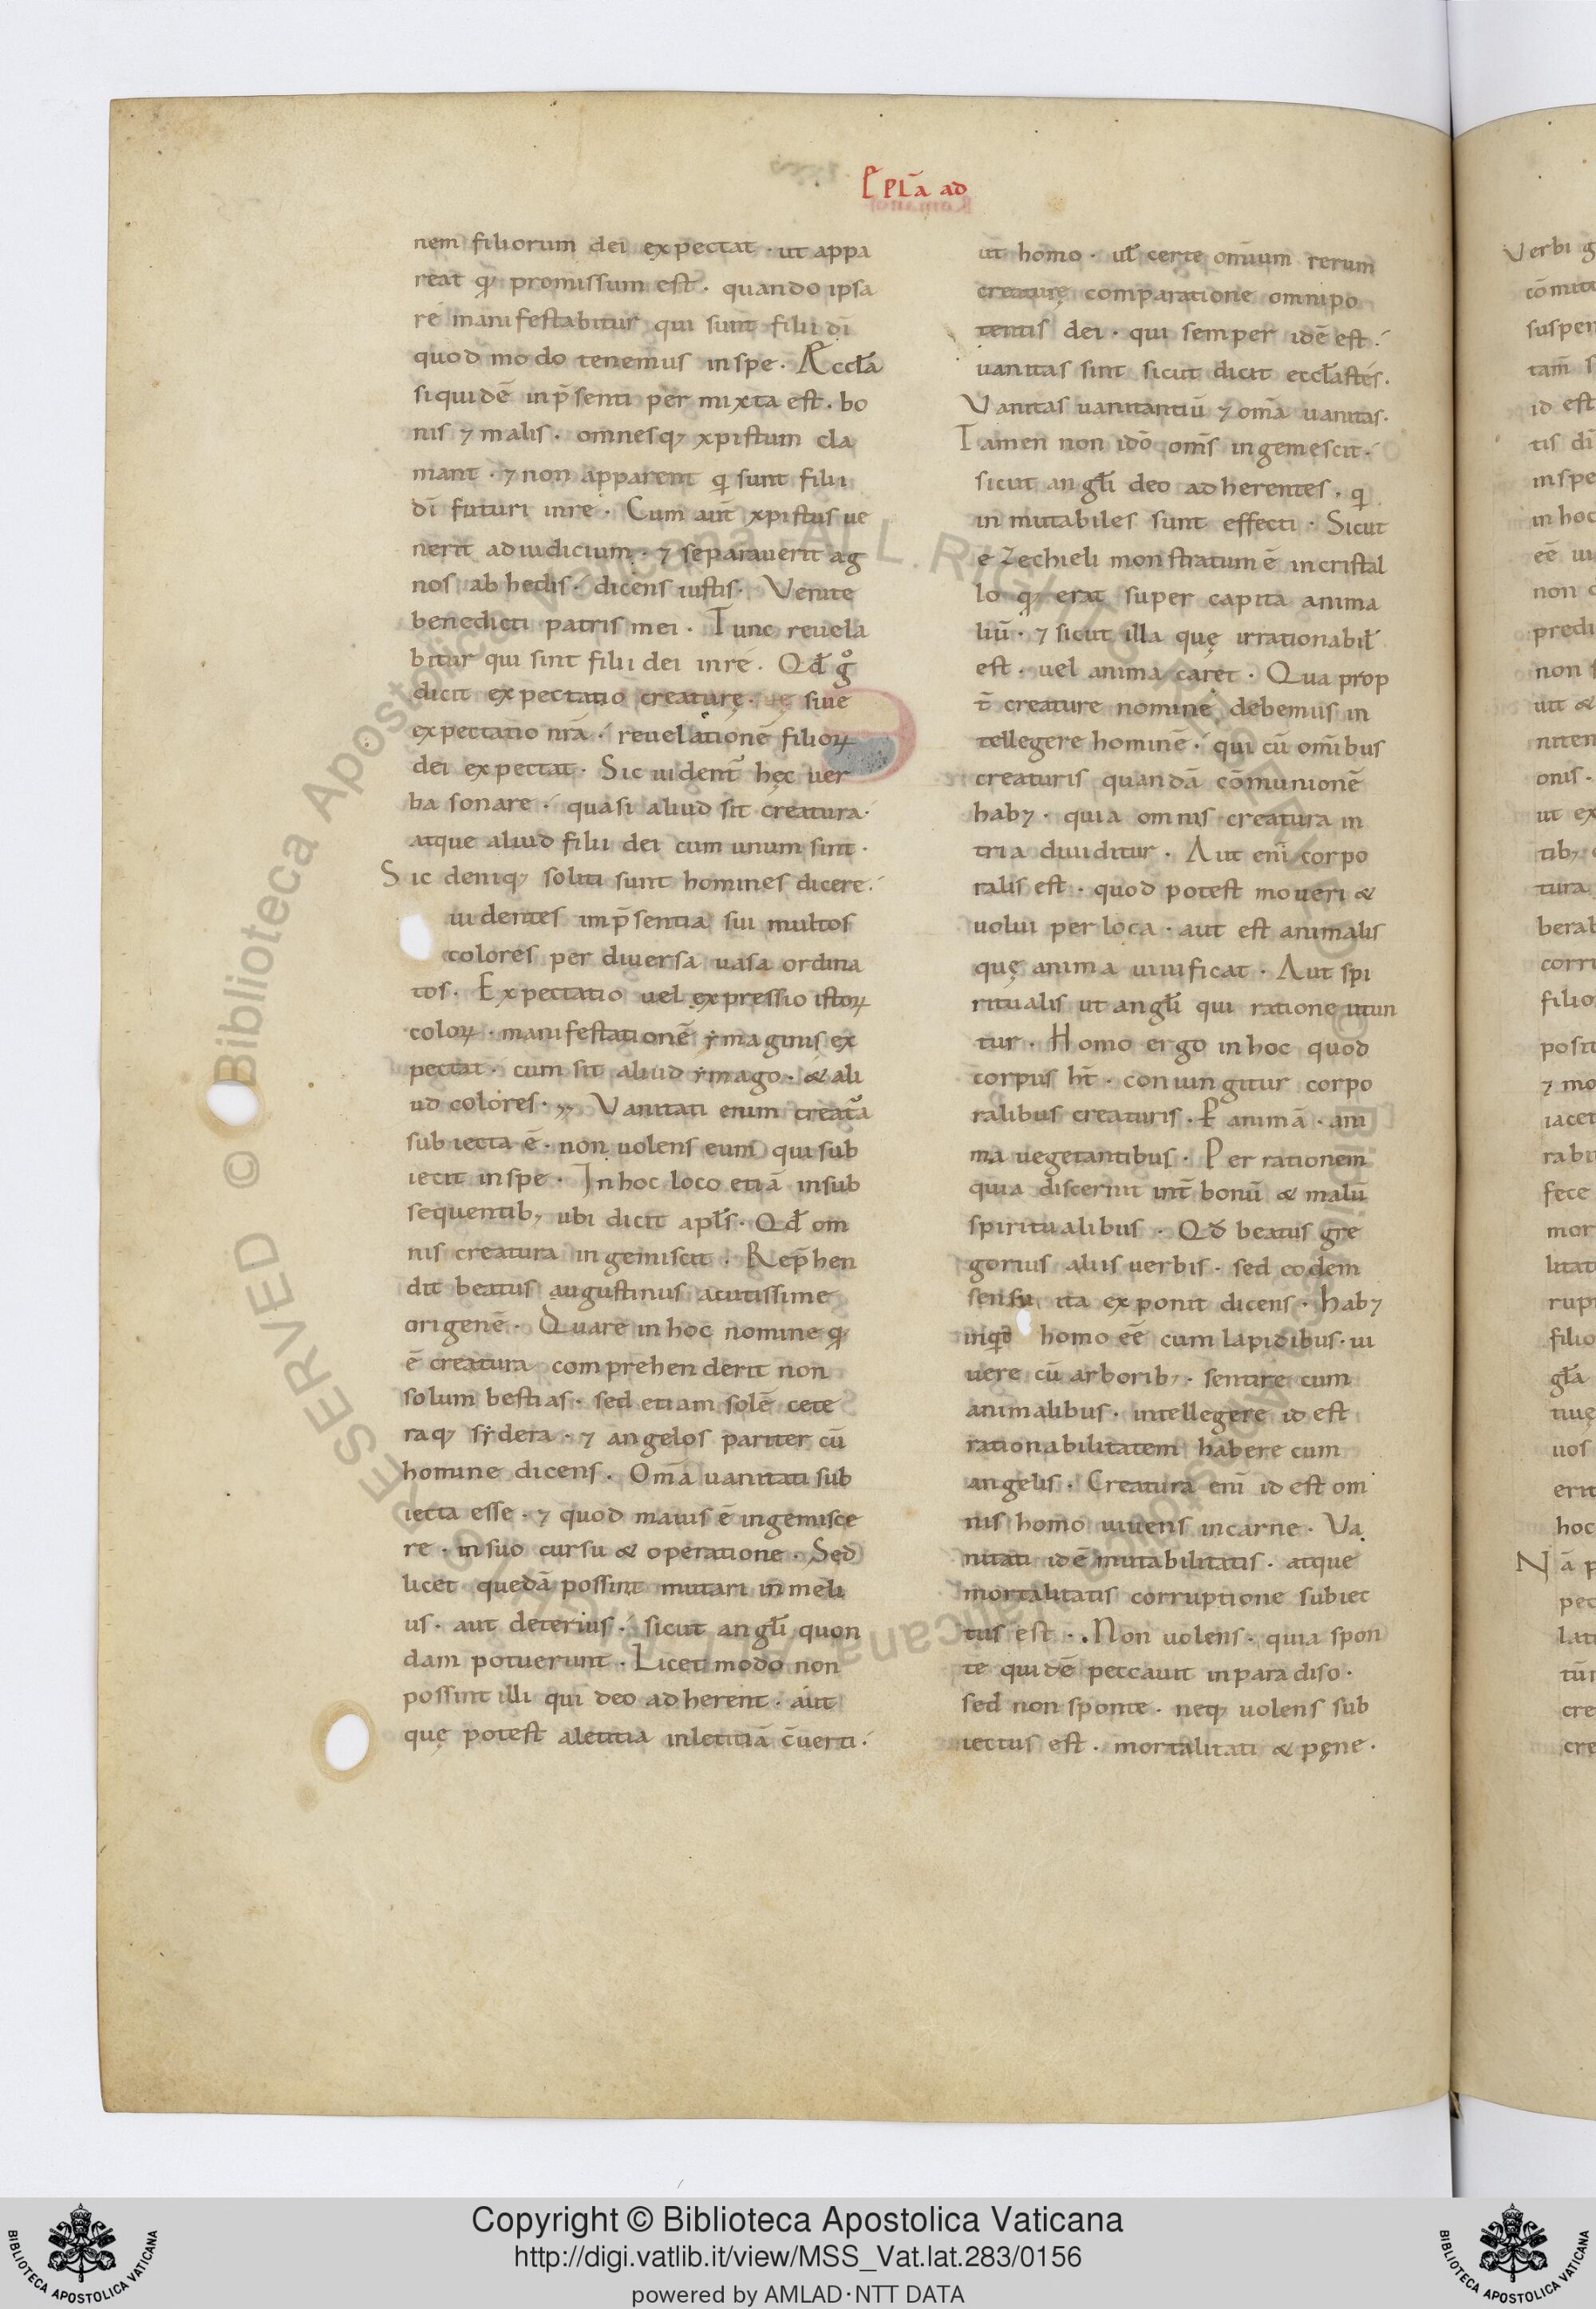 Epła ad
nem filiorum dei expectat · ut appa
reat qđ promissum est · quando ipsa
re manifestabitur qui sunt filii dī
quod modo tenemus in spe · Æccła
siquidē in p̄senti per mixta est · bo
nis ⁊ malis · omnesq; xpistum cla
mant · ⁊ non apparent qi sunt filii
dī futuri in re · Cum aūt xpistus ue
nerit ad iudicium · ⁊ separauerit ag
nos ab hedis · dicens iustis · Venite
benedicti patris mei · Tunc reuela
bitur qui sint filii dei in re · Qđ gͦ
dicit expectatio creaturę · siue
expectatio nrā · reuelationē filioꝝ
dei expectat · Sic uident᷑ hęc uer
ba sonare · quasi aliud sit creatura ·
atque aliud filii dei cum unum sint ·
Sic deniq; soliti sunt homines dicere ·
uidentes in p̄sentia sui multos
colores per diuersa uasa ordina
tos · Expectatio uel expressio istoꝝ
coloꝝ · manifestationē ẏmaginis ex
pectat · cum sit aliud ẏmago · & ali
ud colores · Vanitati enim creat᷑a
subiecta ē · non uolens eum qui sub
iecit in spe · In hoc loco etiā in sub
sequentib; ubi dicit apłs · Qđ om
nis creatura ingemiscit · Rep̄hen
dit beatus augustinus acutissime
origenē · Quare in hoc nomine qđ
ē creatura comprehenderit non
solum bestias · sed etiam solē cete
raq; sẏdera · ⁊ angelos pariter cū
homine dicens · Om̄a uanitati sub
iecta esse · ⁊ quod maius ē ingemisce
re · in suo cursu & operatione · Sed
licet quedā possint mutari in meli
us · aut deterius · sicut angłi quon
dam potuerunt · Licet modo non
possint illi qui deo adherent · aut
quę potest a letitia in letitiā c̄uerti ·
ut homo · uł certe omīum rerum
creaturę comparatione omnipo
tentis dei · qui semper idē est ·
uanitas sint sicut dicit eccłastes ·
Vanitas uanitantiū ⁊ om̄a uanitas ·
Tamen non idō om̄s ingemescit ·
sicut angłi deo adherentes · qi
inmutabiles sunt effecti · Sicut
ezechieli monstratum ē in cristal
lo qđ erat super capita anima
liū · ⁊ sicut illa quę irrationabił
est · uel anima caret · Qua prop
t̄ creature nomine debemus in
tellegere hominē · qui cū omībus
creaturis quandā cōmunionē
hab; · quia omnis creatura in
tria diuiditur · Aut enī corpo
ralis est · quod potest moueri &
uolui per loca · aut est animalis
quę anima uiuificat · Aut spi
ritualis ut angłi qui ratione utun
tur · Homo ergo in hoc quod
corpus ht̄ · coniungitur corpo
ralibus creaturis · P animā · ani
ma uegetantibus · Per rationem
quia discernit int̄ bonū & malū
spiritualibus · Qđ beatus gre
gorius aliis uerbis · sed eodem
sensu ita exponit dicens · hab;
inqid homo eē cum lapidibus · ui
uere cū arborib; · sentire cum
animalibus · intellegere id est
rationabilitatem habere cum
angelis · Creatura enī id est om
nis homo uiuens in carne · Va
nitati idē mutabilitatis · atque
mortalitatis corruptione subiec
tus est · Non uolens · quia spon
te quidē peccauit in paradiso ·
sed non sponte · neq; uolens sub
iectus est · mortalitati & pęne ·
Copyright © Biblioteca Apostolica Vaticana
http://digi.vatlib.it/view/MSS_Vat.lat.283/0156
powered by AMLAD·NTT DATA